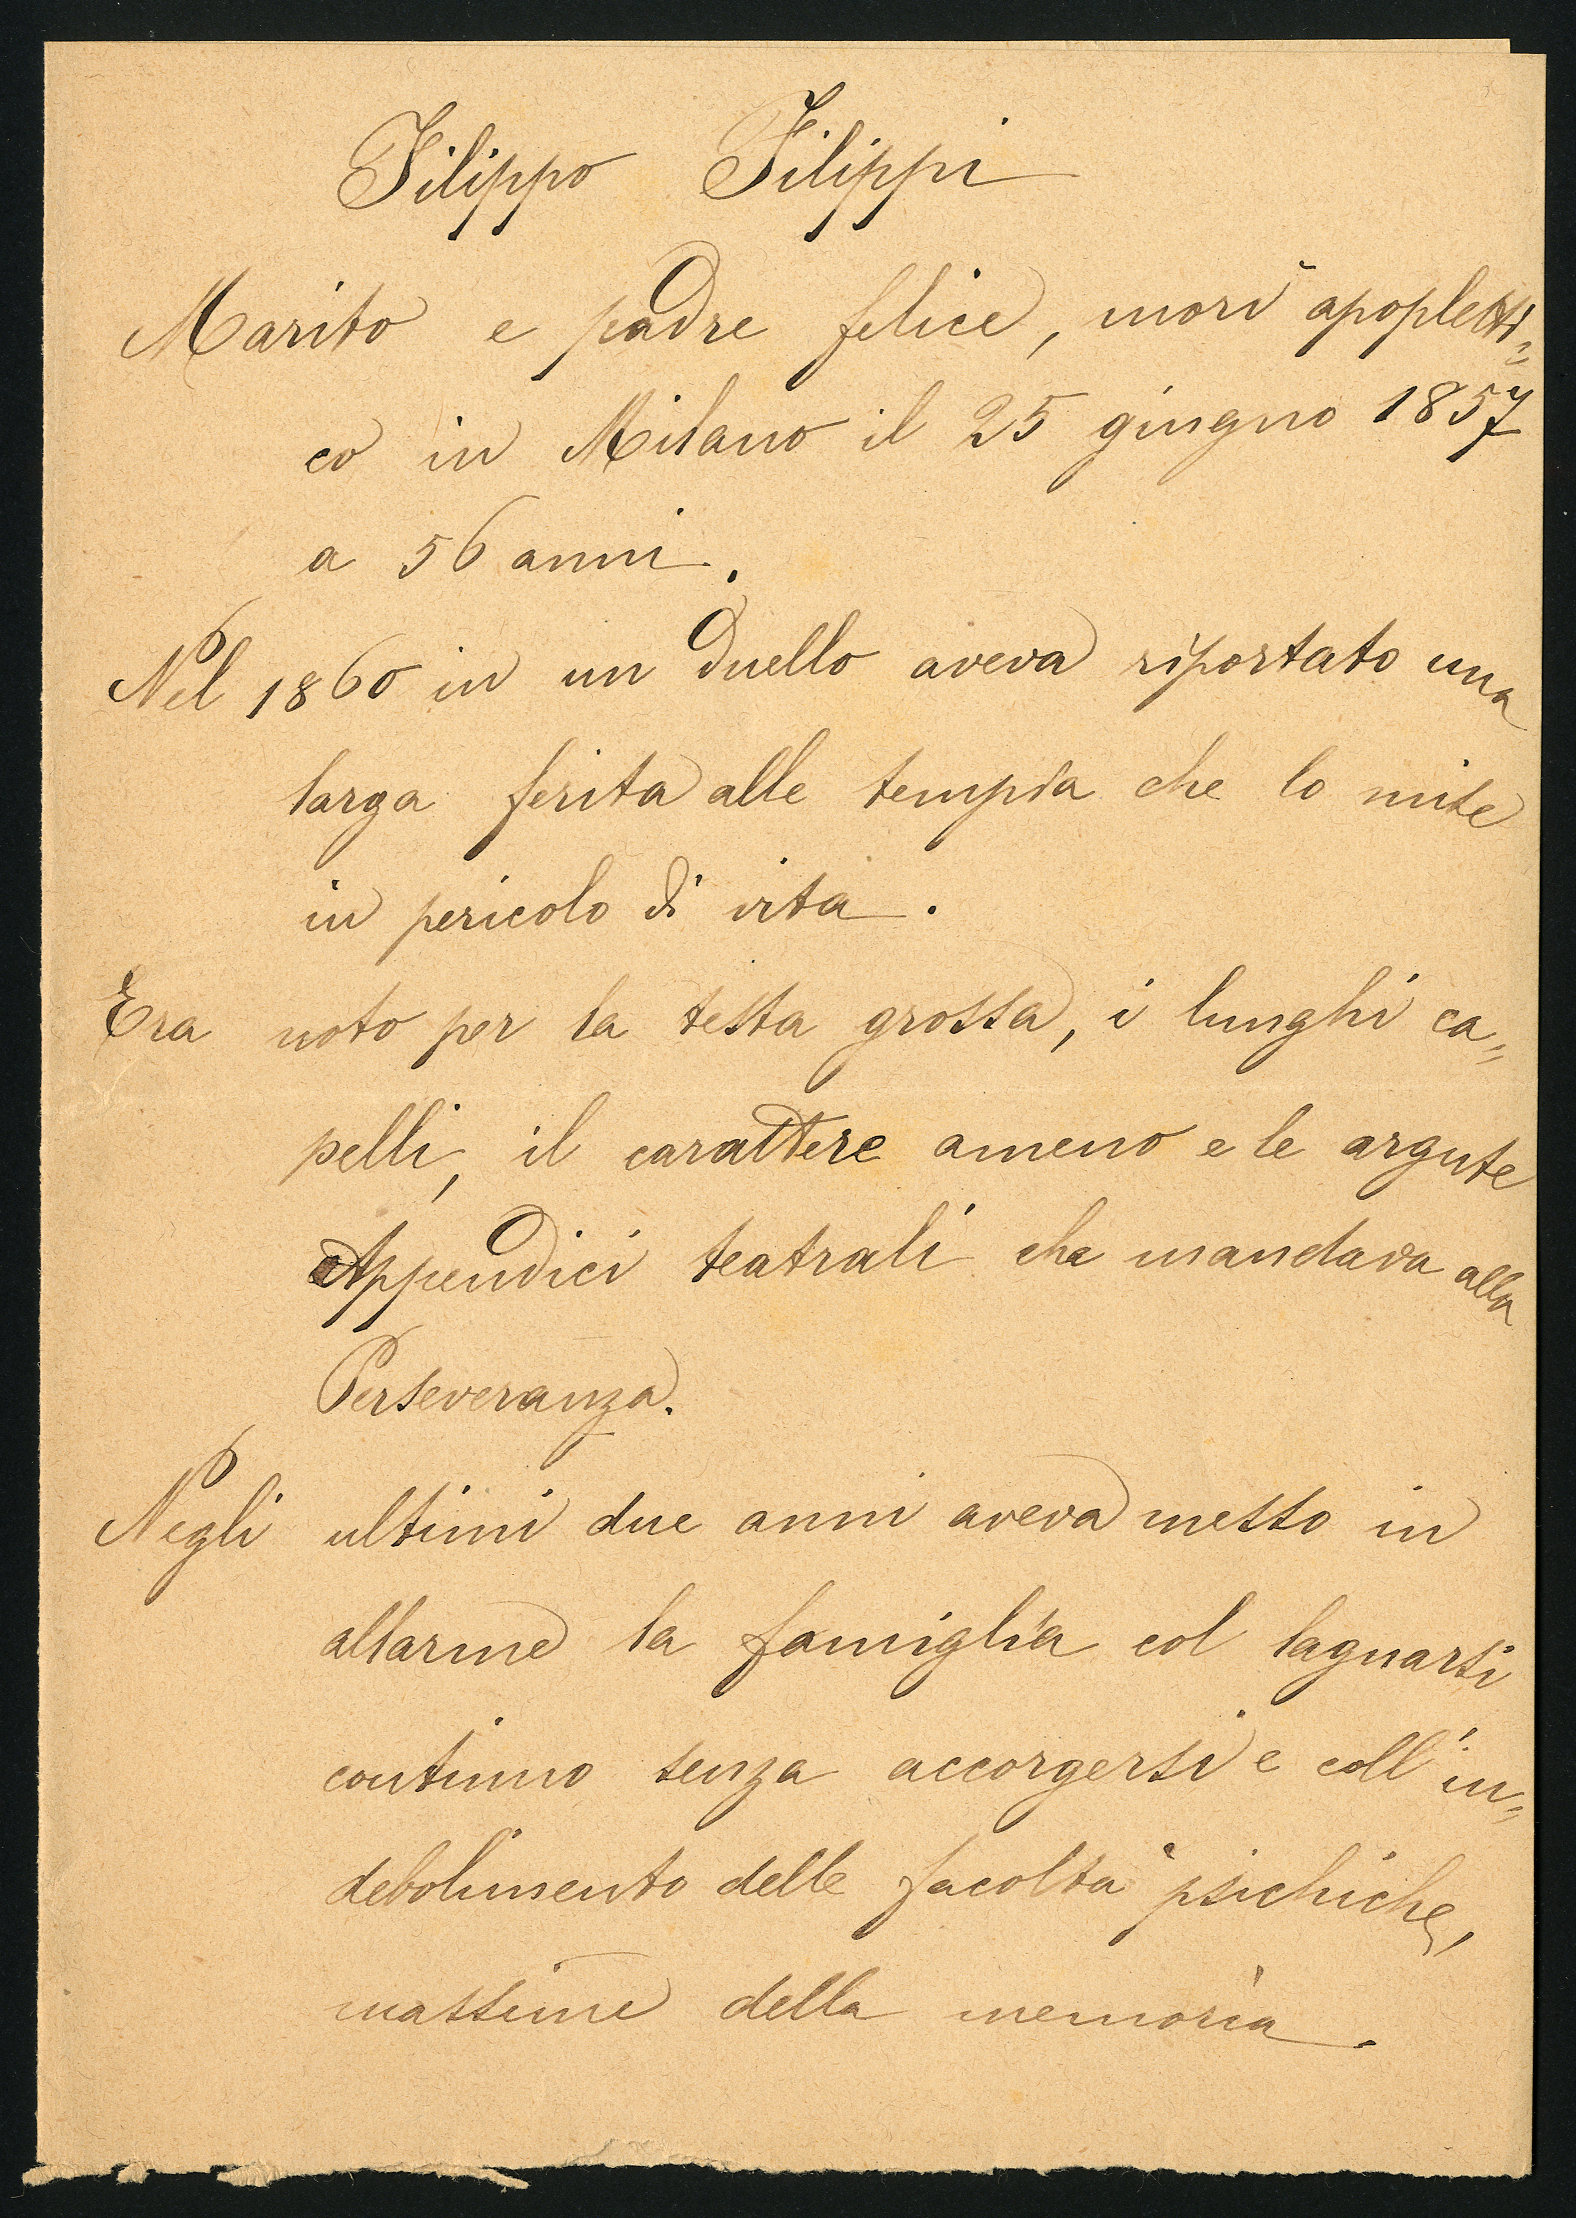 Filippo Filippi
Marito e padre felice, morì apopletti=
co in Milano il 25 giugno 1857
a 56 anni.
Nel 1860 in un duello aveva riportato una
larga ferita alle tempia che lo mise
in pericolo di vita.
Era noto per la testa grossa, i lunghi ca=
pelli, il carattere ameno e le argute
Appendici teatrali che mandava alla
Perseveranza.
Negli ultimi due anni aveva messo in
allarme la famiglia col lagnarsi
continuo senza accorgersi e coll'in=
debolimento delle facoltà psichiche,
massime della memoria.